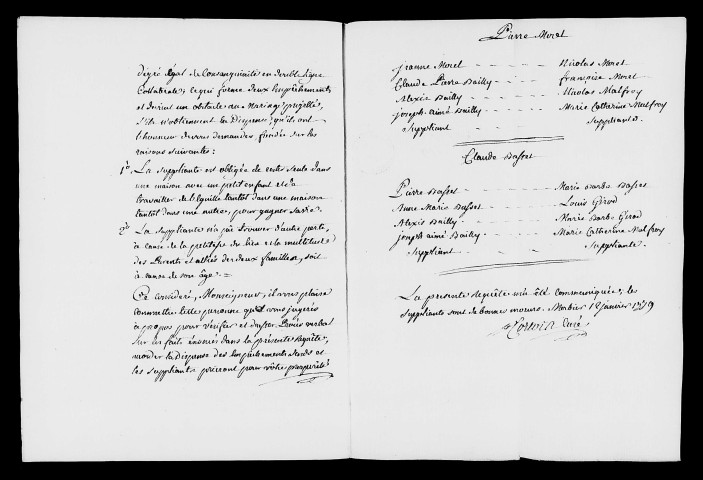 dégré égal de Consanguinité en double ligne
Collaterale; ce qui forme deux Empêchements
et devient un obstacle au Mariage projetté,
s'ils n'obtiennent la Dispense, qu'ils ont
l'honneur de vous demander, fondée sur les
raisons suivantes:
1º. La Suppliante est obligée de rester seule dans
une maison avec un petit enfant et de
travailler de l'Eguille tantôt dans une maison
tantôt dans une autre, pour gagner sa vie.
2º La Suppliante n'a pu trouver d'autre parti,
à cause de la petitesse du lieu et la multitude
des Parents et alliés des deux familles, soit
à cause de son âge. =
Ce considéré, Monseigneur, il vous plaise
commettre telle personne que vous jugerés
à propos pour vérifier et dresser Procès verbal
sur les faits énoncés dans la présente Requête,
accorder la Dispense des Empêchements susdits et
les Suppliants prieront pour vôtre prosperité
Pierre Morel
Jeanne Morel - - - - - Nicolas Morel
Claude Pierre Bailly - - - - françoise Morel
Alexis Bailly - - - - - Nicolas Malfroy
joseph aimé Bailly - - - - Marie Catherine Malfroy
Suppliant - - - - - Suppliante.
Claude Basset
Pierre Basset - - - - - Marie barbe Basset
Anne Marie Basset - - - - Louis Girod
Alexis Bailly - - - - - Marie Barbe Girod
joseph aimé Bailly - - - - Marie Catherine Malfroy
Suppliant - - - - - Suppliante.
La presente Requête m'a été communiquée, les
Suppliants sont de bonnes moeurs. Morbier 18 janvier
Curé